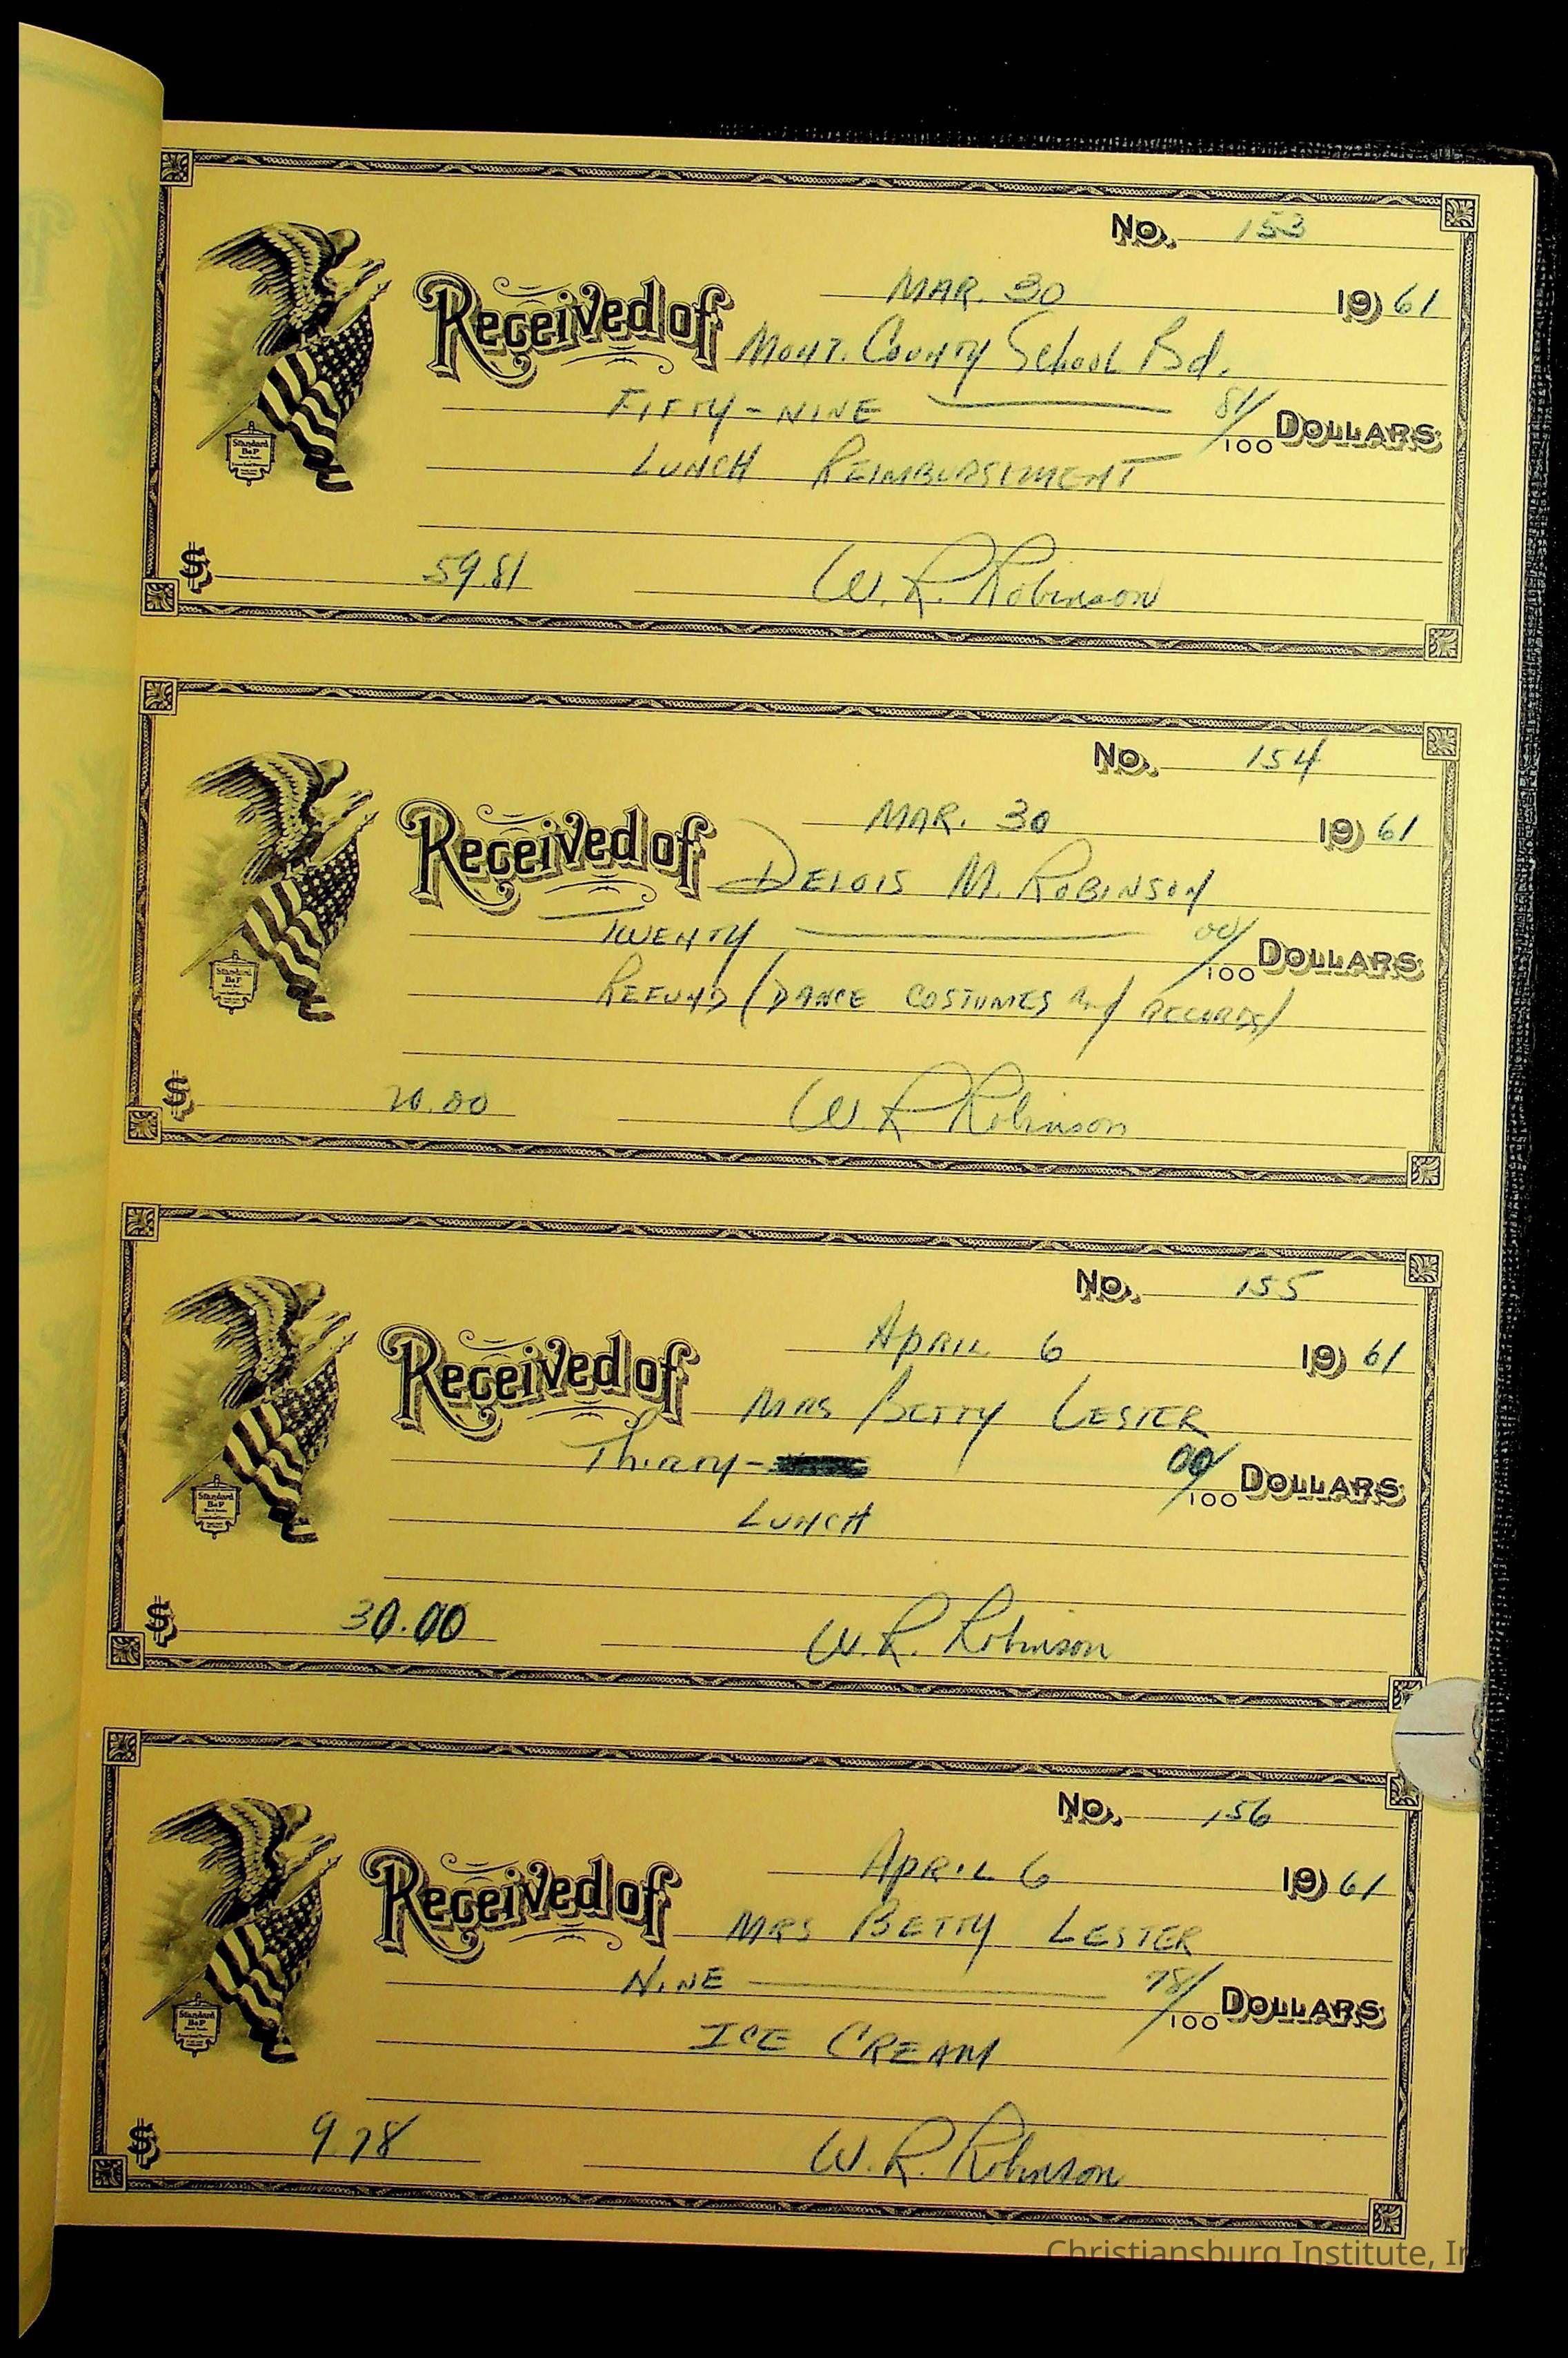 No. 153
MAR. 30 1961
Received of Mont. County School Bd.
FIFTY-NINE 81/100 DOLLARS
LUNCH REIMBURSIMENT
$ 59.81 W. R. Robinson
No. 154
MAR. 30 1961
Received of DELOIS M. ROBINSON
TWENTY 00/100 DOLLARS
REFUND (DANCE COSTUMES and RECORDS)
$ 20.00 W R Robinson
No. 155
APRIL 6 1961
Received of MRS BETTY LESTER
Thirty- 00/100 DOLLARS
LUNCH
$ 30.00 W. R. Robinson
No. 156
APRIL 6 1961
Received of MRS BETTY LESTER
NINE 78/100 DOLLARS
ICE CREAM
$ 9.78 W. R. Robinson
Christiansburg Institute, In